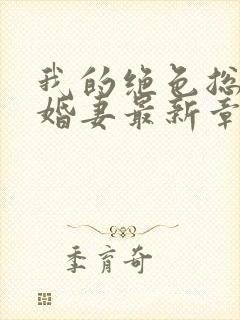 我的绝色总
婚妻最新章
季育奇